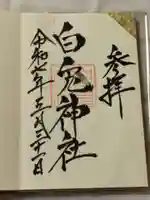 奉拝
白兎神社
令和七年三月三十一日